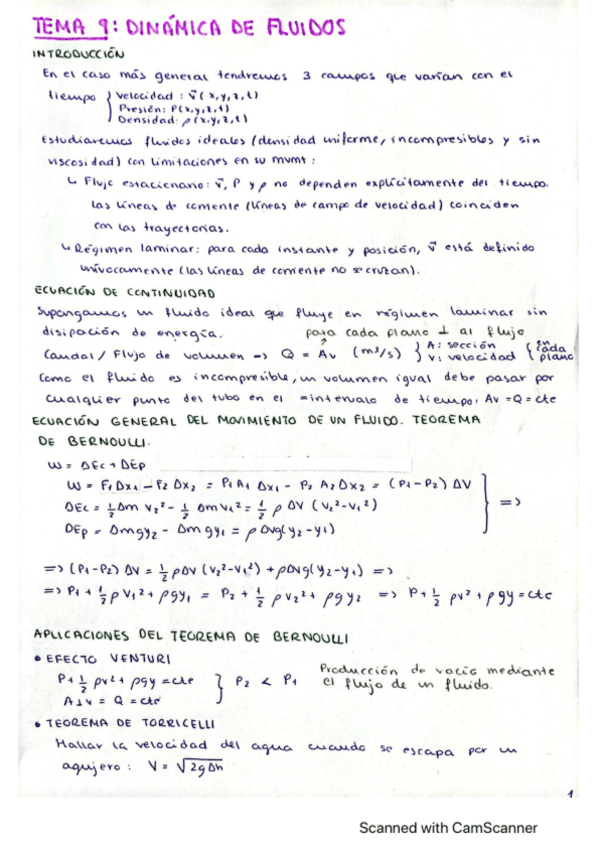 TEMA 9: DINÁMICA DE FLUIDOS
INTRODUCCIÓN
En el caso más general tendremos 3 campos que varían con el
tiempo { Velocidad: v⃗(x,y,z,t)
Presión: P(x,y,z,t)
Densidad: ρ(x,y,z,t)
Estudiaremos fluidos ideales (densidad uniforme, incompresibles y sin
viscosidad) con limitaciones en su mvmt:
↳ Flujo estacionario: v⃗, P y ρ no dependen explícitamente del tiempo.
Las líneas de corriente (líneas de campo de velocidad) coinciden
con las trayectorias.
↳ Régimen laminar: para cada instante y posición, v⃗ está definido
unívocamente (las líneas de corriente no se cruzan).
ECUACIÓN DE CONTINUIDAD
Supongamos un fluido ideal que fluye en régimen laminar sin
disipación de energía. para cada plano ⊥ al flujo
Caudal / Flujo de volumen → Q = Av (m³/s) } A: sección v: velocidad { en cada plano
Como el fluido es incompresible, un volumen igual debe pasar por
cualquier punto del tubo en el =intervalo de tiempo: Av = Q = cte
ECUACIÓN GENERAL DEL MOVIMIENTO DE UN FLUIDO. TEOREMA
DE BERNOULLI.
W = ΔEc + ΔEp
W = F₁Δx₁ - F₂Δx₂ = P₁A₁Δx₁ - P₂A₂Δx₂ = (P₁-P₂)ΔV
ΔEc = ½Δm v₂² - ½Δm v₁² = ½ρΔV(v₂²-v₁²) } =>
ΔEp = Δmgy₂ - Δmgy₁ = ρΔVg(y₂-y₁)
=> (P₁-P₂)ΔV = ½ρΔV(v₂²-v₁²) + ρΔVg(y₂-y₁) =>
=> P₁+½ρv₁²+ρgy₁ = P₂+½ρv₂²+ρgy₂ => P+½ρv²+ρgy=cte
APLICACIONES DEL TEOREMA DE BERNOULLI
• EFECTO VENTURI
P+½ρv²+ρgy=cte } P₂ < P₁ Producción de vacío mediante
A⊥v = Q = cte el flujo de un fluido.
• TEOREMA DE TORRICELLI
Hallar la velocidad del agua cuando se escapa por un
agujero: V = √2gΔh
1
Scanned with CamScanner